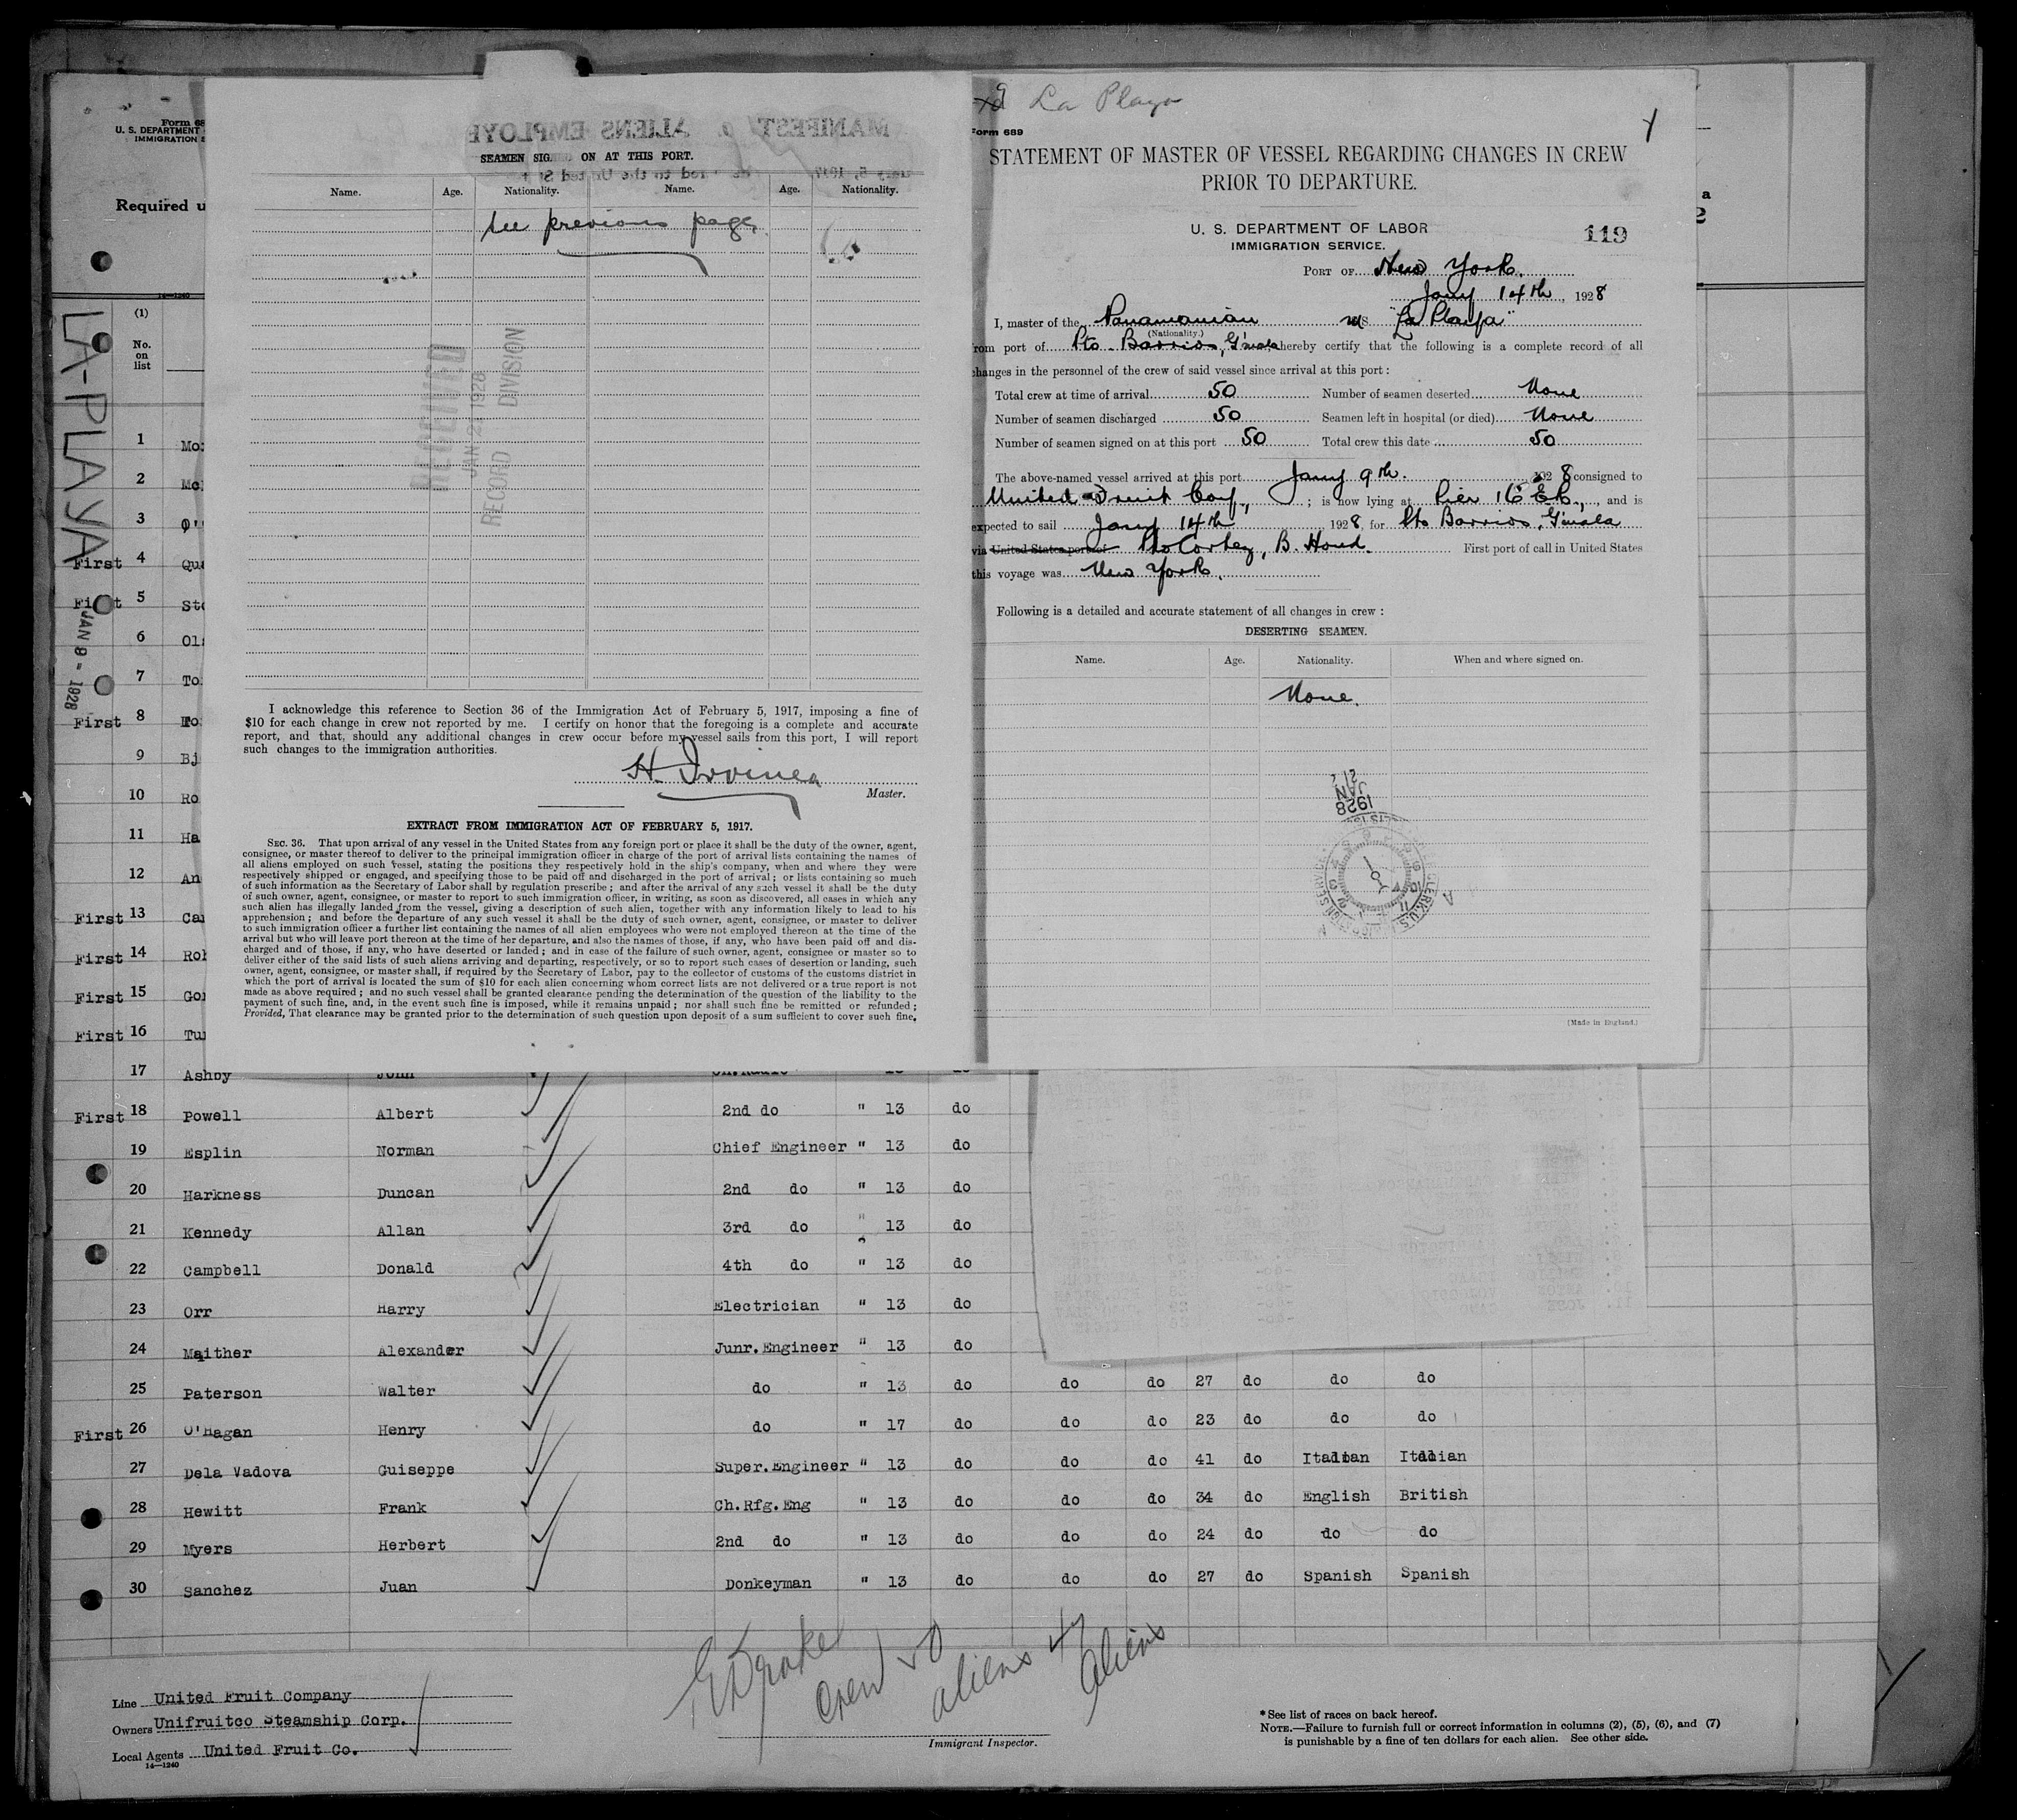 Form 68
U. S. DEPARTMENT
IMMIGRATION S
Required u
14—1240
(1)
No.
on
list
LA-PLAYA
JAN 9 - 1928
1 Mo
2 Mc
3 O'
First 4 Qu
First 5 St
6 Ol
7 To
First 8
9 Bj
10 Ro
11 Ha
12 An
First 13 Ca
First 14 Ro
First 15 Go
First 16 Tu
MANIFEST ALIENS EMPLOYE
SEAMEN SIG. ON AT THIS PORT.
Name. Age. Nationality. Name. Age. Nationality.
See previous page.
RECEIVED
JAN 21 1928
RECORD DIVISION
I acknowledge this reference to Section 36 of the Immigration Act of February 5, 1917, imposing a fine of
$10 for each change in crew not reported by me. I certify on honor that the foregoing is a complete and accurate
report, and that, should any additional changes in crew occur before my vessel sails from this port, I will report
such changes to the immigration authorities.
H. Irvine
Master.
EXTRACT FROM IMMIGRATION ACT OF FEBRUARY 5, 1917.
SEC. 36. That upon arrival of any vessel in the United States from any foreign port or place it shall be the duty of the owner, agent,
consignee, or master thereof to deliver to the principal immigration officer in charge of the port of arrival lists containing the names of
all aliens employed on such vessel, stating the positions they respectively hold in the ship's company, when and where they were
respectively shipped or engaged, and specifying those to be paid off and discharged in the port of arrival; or lists containing so much
of such information as the Secretary of Labor shall by regulation prescribe; and after the arrival of any such vessel it shall be the duty
of such owner, agent, consignee, or master to report to such immigration officer, in writing, as soon as discovered, all cases in which any
such alien has illegally landed from the vessel, giving a description of such alien, together with any information likely to lead to his
apprehension; and before the departure of any such vessel it shall be the duty of such owner, agent, consignee, or master to deliver
to such immigration officer a further list containing the names of all alien employees who were not employed thereon at the time of the
arrival but who will leave port thereon at the time of her departure, and also the names of those, if any, who have been paid off and dis-
charged and of those, if any, who have deserted or landed; and in case of the failure of such owner, agent, consignee or master so to
deliver either of the said lists of such aliens arriving and departing, respectively, or so to report such cases of desertion or landing, such
owner, agent, consignee, or master shall, if required by the Secretary of Labor, pay to the collector of customs of the customs district in
which the port of arrival is located the sum of $10 for each alien concerning whom correct lists are not delivered or a true report is not
made as above required; and no such vessel shall be granted clearance pending the determination of the question of the liability to the
payment of such fine, and, in the event such fine is imposed, while it remains unpaid; nor shall such fine be remitted or refunded;
Provided, That clearance may be granted prior to the determination of such question upon deposit of a sum sufficient to cover such fine.
La Playa
Form 689
STATEMENT OF MASTER OF VESSEL REGARDING CHANGES IN CREW
PRIOR TO DEPARTURE.
U. S. DEPARTMENT OF LABOR
IMMIGRATION SERVICE.
119
PORT OF New York.
Jany 14th, 1928
I, master of the Panamanian ms "La Playa"
(Nationality.)
from port of Pto. Barrios, G'mala hereby certify that the following is a complete record of all
changes in the personnel of the crew of said vessel since arrival at this port:
Total crew at time of arrival 50 Number of seamen deserted None
Number of seamen discharged 50 Seamen left in hospital (or died) None
Number of seamen signed on at this port 50 Total crew this date 50
The above-named vessel arrived at this port Jany 9th. 1928 consigned to
United Fruit Coy., ; is now lying at Pier 16 ER, and is
expected to sail Jany 14th 1928 for Pto Barrios, G'mala
via United States port of Pto Cortez, B. Hond. First port of call in United States
this voyage was New York.
Following is a detailed and accurate statement of all changes in crew:
DESERTING SEAMEN.
Name. Age. Nationality. When and where signed on.
None.
JAN 21 1928
[Made in England.]
17 Ashby John
First 18 Powell Albert 2nd do " 13 do
19 Esplin Norman Chief Engineer " 13 do
20 Harkness Duncan 2nd do " 13 do
21 Kennedy Allan 3rd do " 13 do
22 Campbell Donald 4th do " 13 do
23 Orr Harry Electrician " 13 do
24 Maither Alexander Junr. Engineer " 13 do
25 Paterson Walter do " 13 do do do 27 do do do
First 26 O'Hagan Henry do " 17 do do do 23 do do do
27 Dela Vadova Guiseppe Super. Engineer " 13 do do do 41 do Italian Italian
28 Hewitt Frank Ch. Rfg. Eng " 13 do do do 34 do English British
29 Myers Herbert 2nd do " 13 do do do 24 do do do
30 Sanchez Juan Donkeyman " 13 do do do 27 do Spanish Spanish
crew 50
aliens 47
aliens
Line United Fruit Company
Owners Unifruitco Steamship Corp.
Local Agents United Fruit Co.
14—1240
Immigrant Inspector.
*See list of races on back hereof.
NOTE.—Failure to furnish full or correct information in columns (2), (5), (6), and (7)
is punishable by a fine of ten dollars for each alien. See other side.